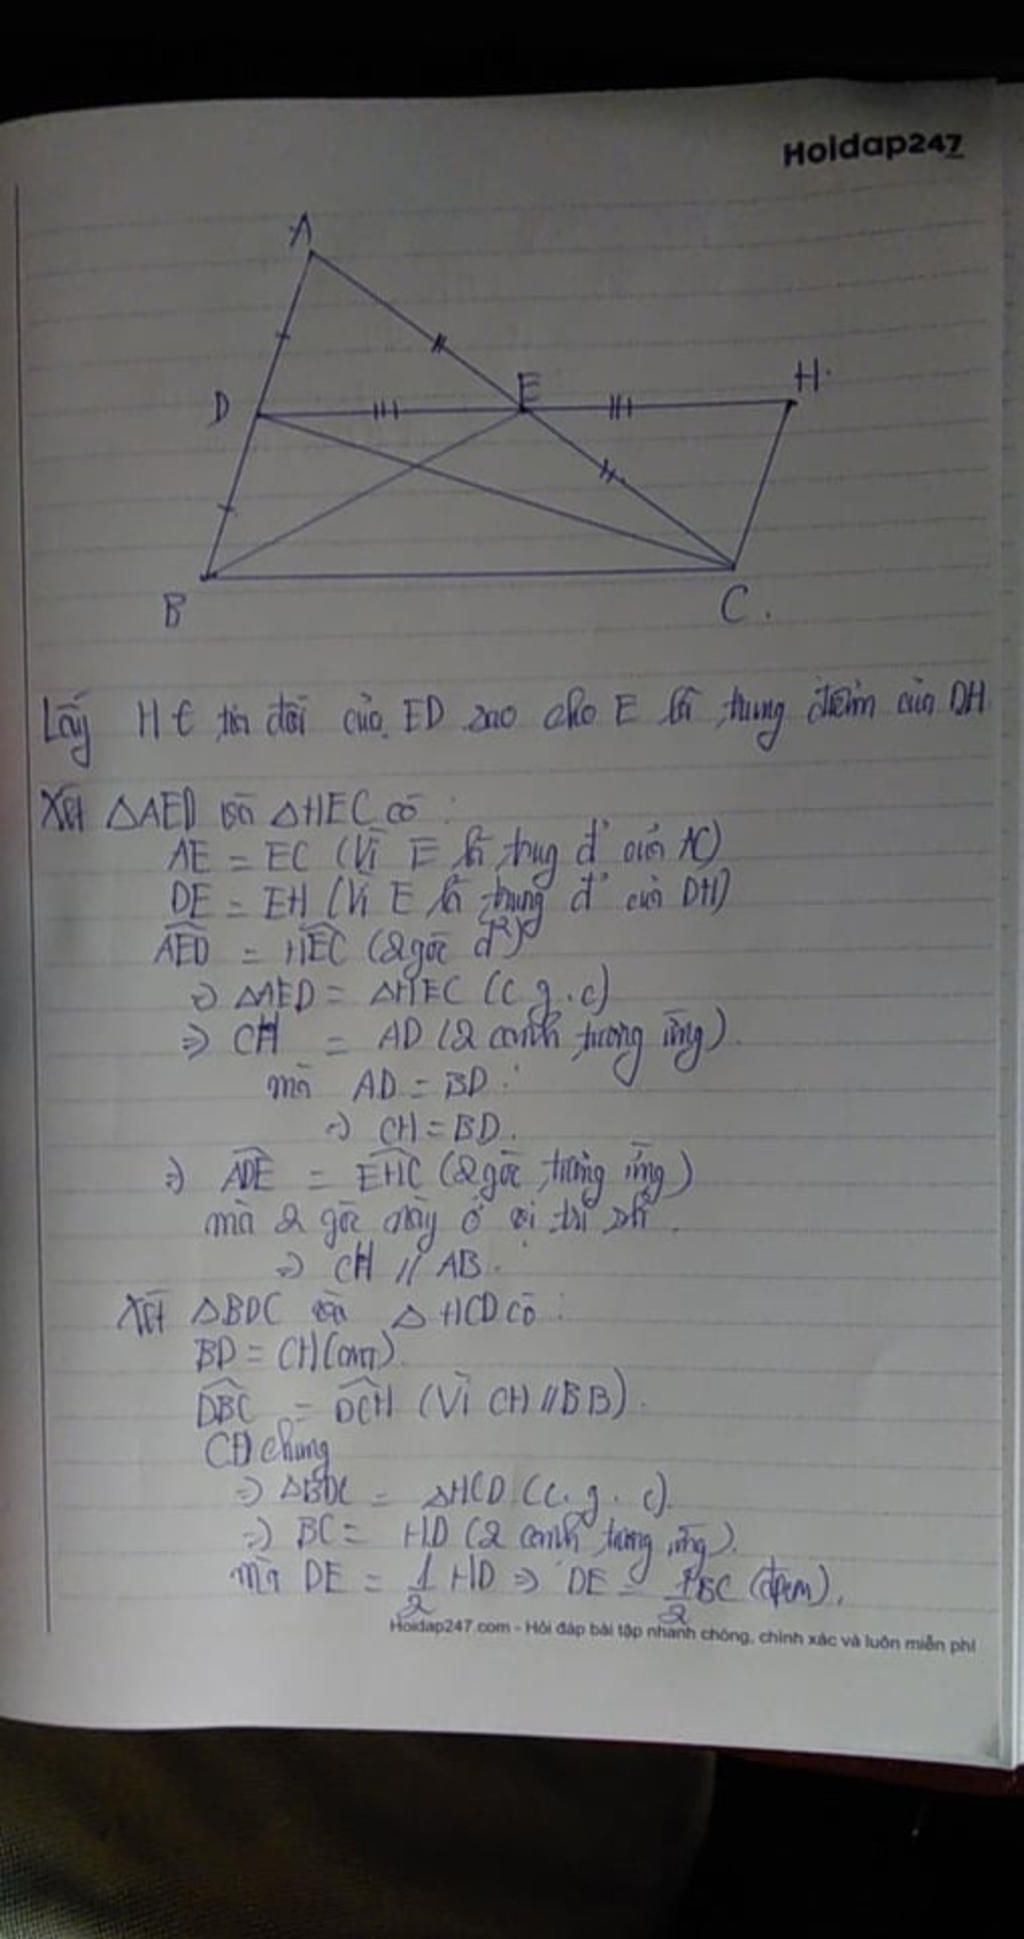 Hoidap247
A
D
E
H
B
C
Lấy H ∈ tia đối của ED sao cho E là trung điểm của DH
Xét △AED và △HEC có :
AE = EC (Vì E là trug đ' của AC)
DE = EH (Vì E là trung đ' của DH)
AED = HEC (2 góc đ²)
⇒ △AED = △HEC (c g.c)
⇒ CH = AD (2 cạnh tương ứng).
mà AD = BD
⇒ CH = BD.
⇒ ADE = EHC (2 góc tương ứng)
mà 2 góc này ở vị trí slt.
⇒ CH // AB.
Xét △BDC và △HCD có :
BD = CH (cmt).
DBC = DCH (Vì CH // BB).
CD chung
⇒ △BDC = △HCD (c.g.c).
⇒ BC = HD (2 cạnh tương ứng).
mà DE = 1/2 HD ⇒ DE = 1/2 BC (đpcm).
Hoidap247.com - Hỏi đáp bài tập nhanh chóng, chính xác và luôn miễn phí